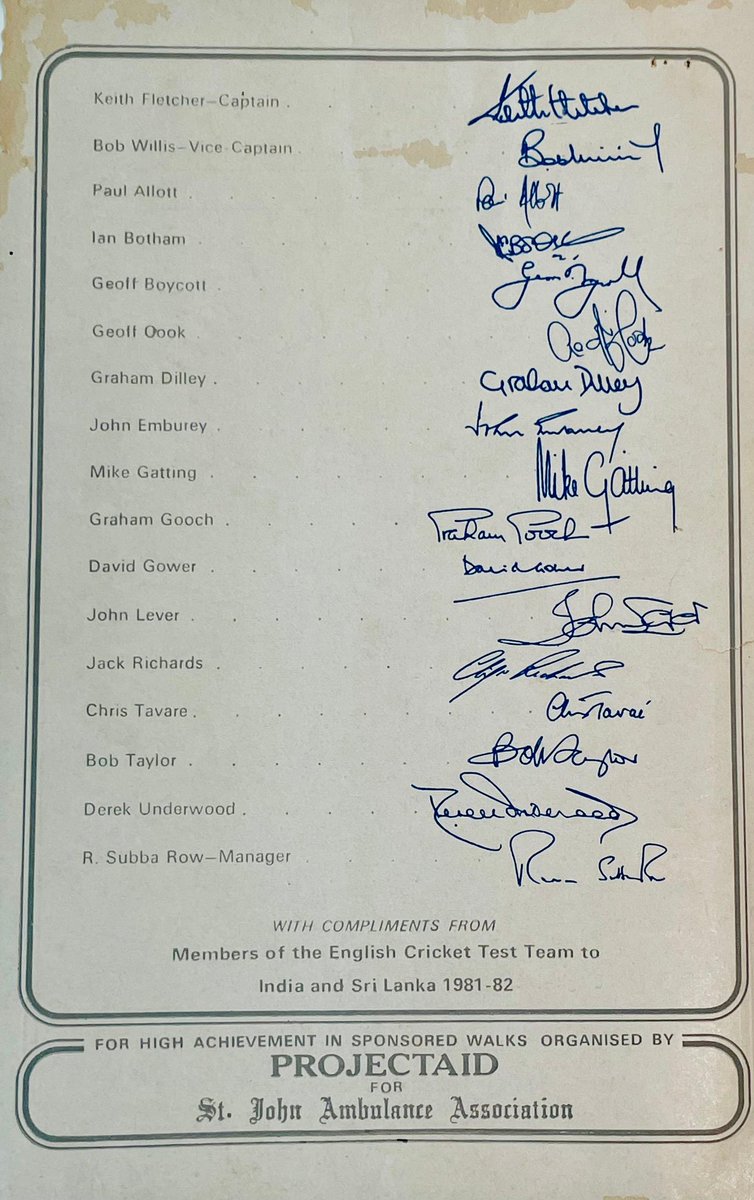 Keith Fletcher—Captain . . . . Keith Fletcher
Bob Willis—Vice-Captain . . . .
Paul Allott . . . . . Allott
Ian Botham . . . . .
Geoff Boycott . . . . .
Geoff Oook . . . . . Geoff Cook
Graham Dilley . . . . . Graham Dilley
John Emburey . . . . . John Emburey
Mike Gatting . . . . . Mike Gatting
Graham Gooch . . . . . Graham Gooch
David Gower . . . . . David Gower
John Lever . . . . . John Lever
Jack Richards . . . . . Richards
Chris Tavare . . . . . Chris Tavaré
Bob Taylor . . . . . Bob Taylor
Derek Underwood . . . . Derek Underwood
R. Subba Row—Manager . . .
WITH COMPLIMENTS FROM
Members of the English Cricket Test Team to
India and Sri Lanka 1981-82
FOR HIGH ACHIEVEMENT IN SPONSORED WALKS ORGANISED BY
PROJECTAID
FOR
St. John Ambulance Association